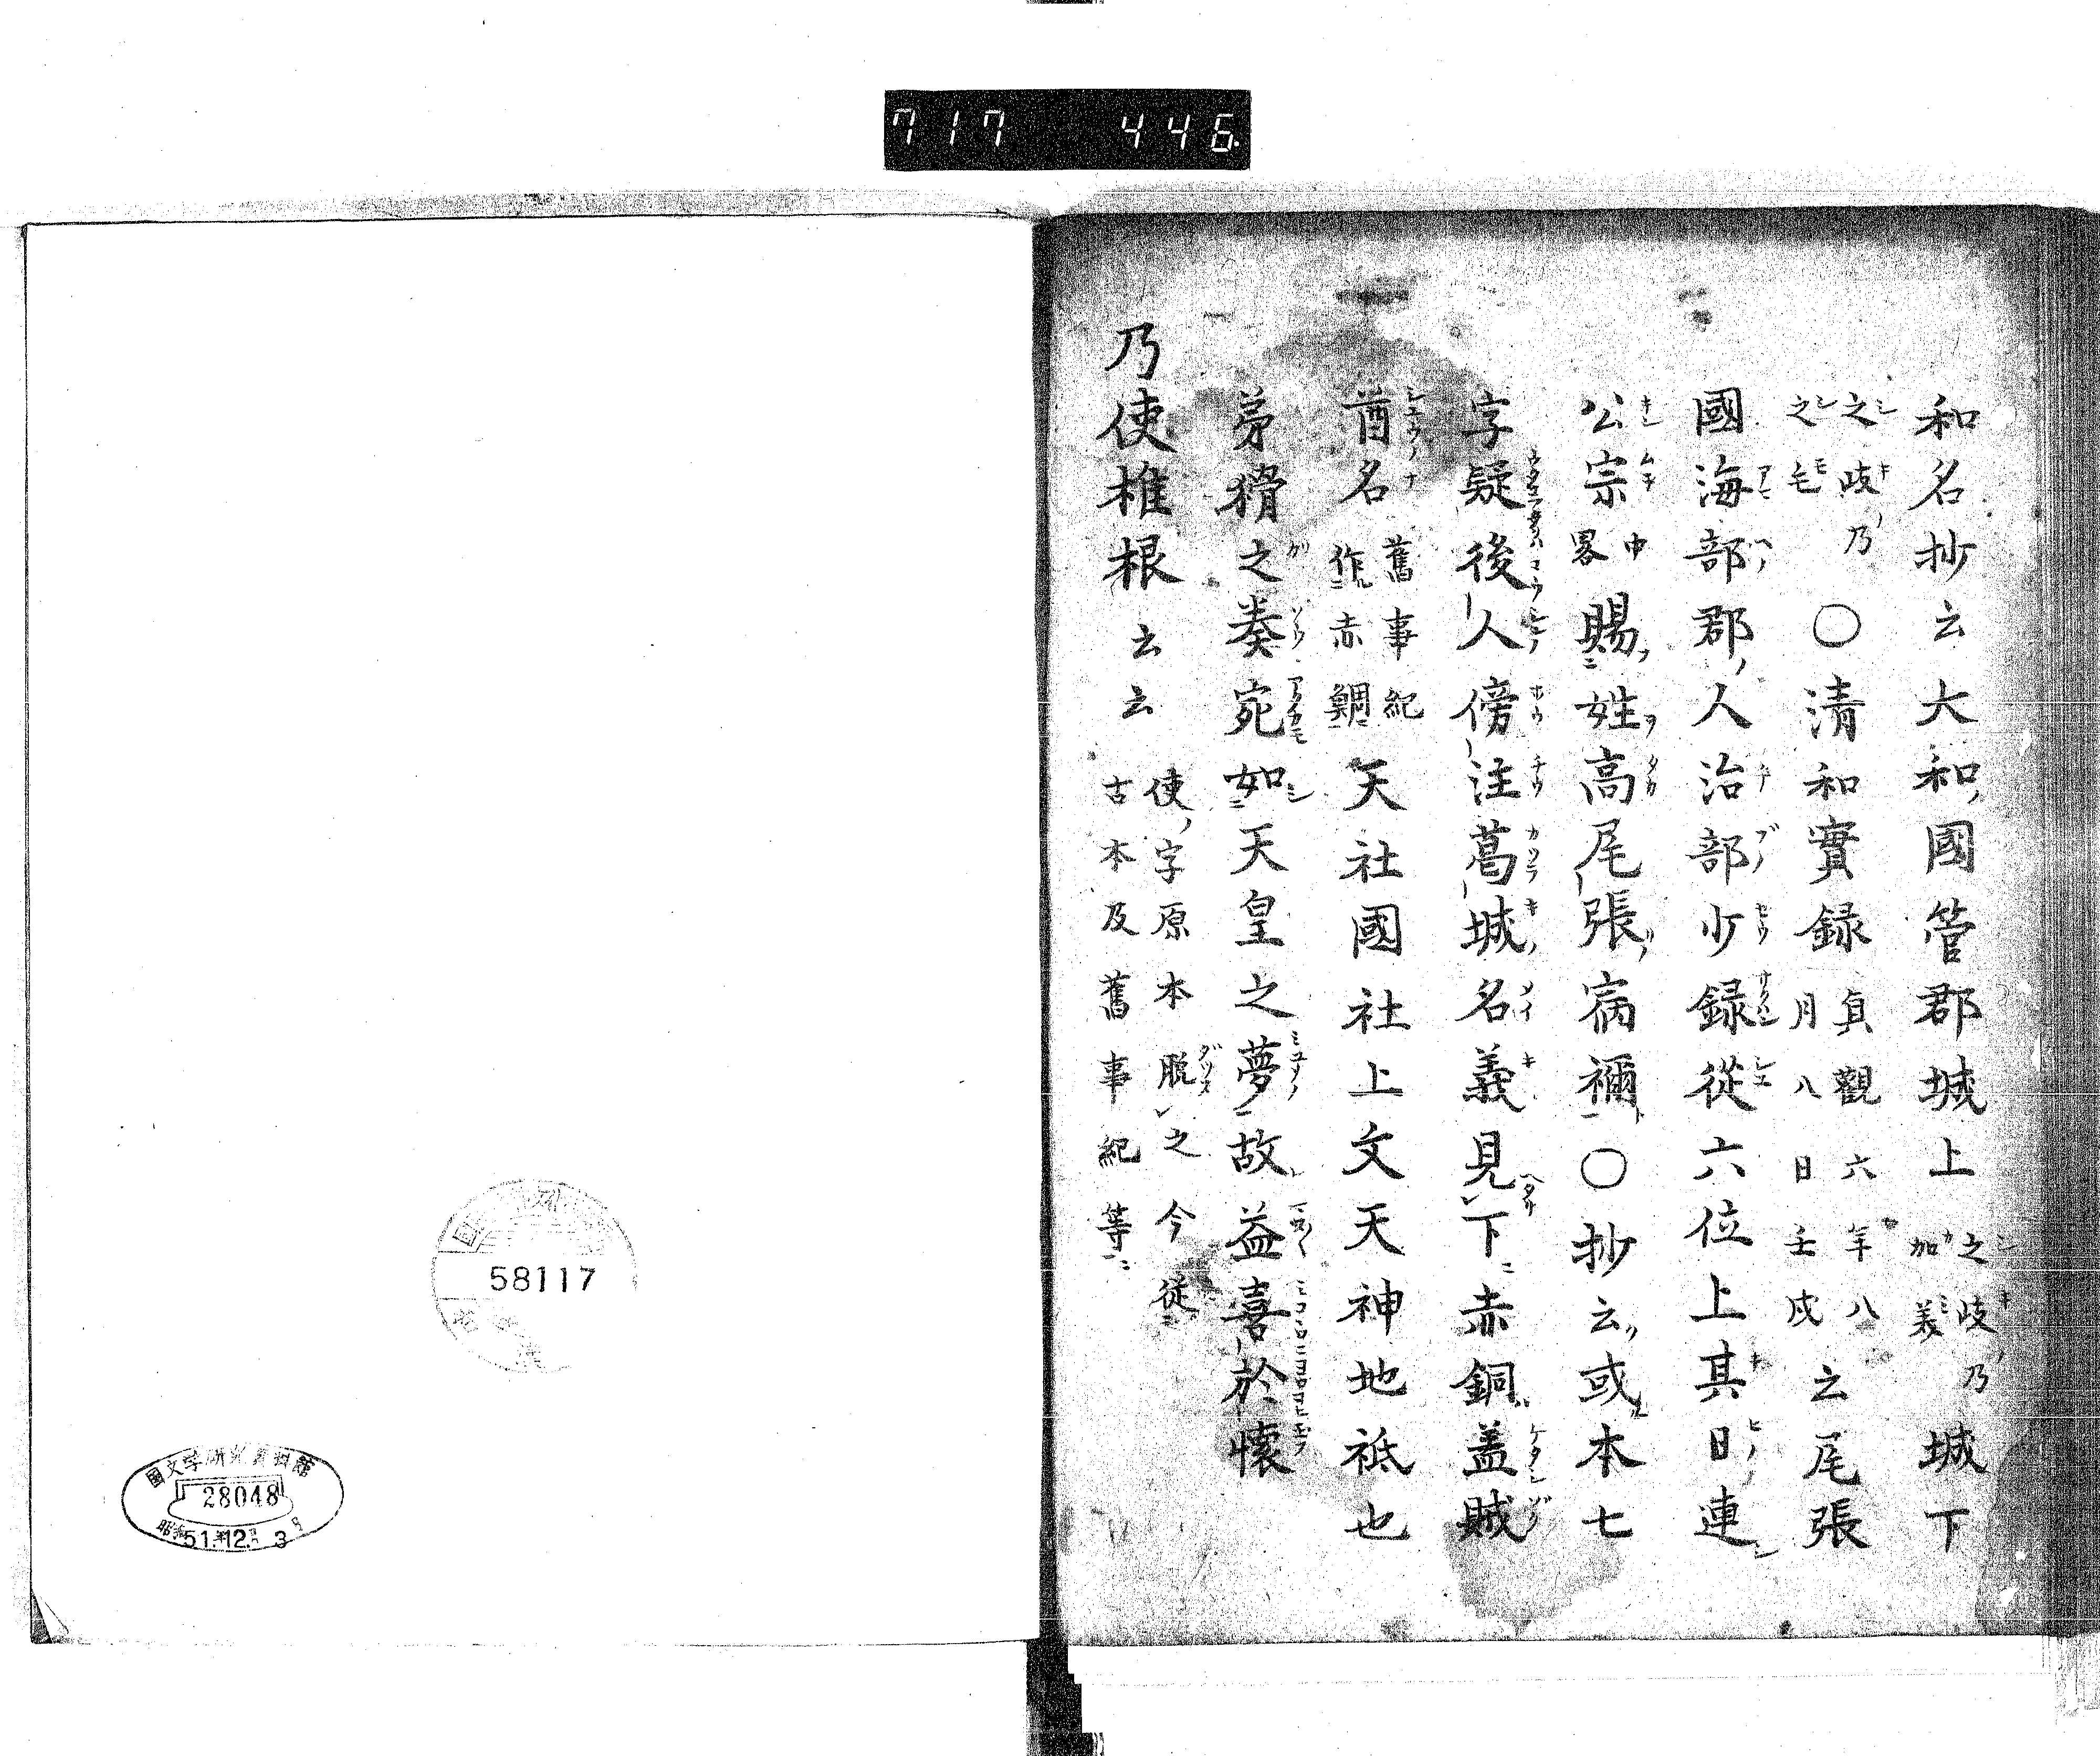 717 446
和名抄云大和國管郡城上 之岐乃加美 城下
之岐乃之毛 ○清和實録 貞觀六年八月八日壬戌 云尾張
國海部郡人治部少録從六位上其日連
公宗 中畧 賜姓高尾張宿禰○抄云或本七
字疑後人傍注葛城名義見下赤銅蓋賊
酋名 舊事紀作赤鯛 天社國社上文天神地祇也
弟猾之奏宛如天皇之夢故益喜於懷
乃使椎根云云 使字原本脱之今從古本及舊事紀等
58117
國文学研究資料館
28048
昭和51年12月3日